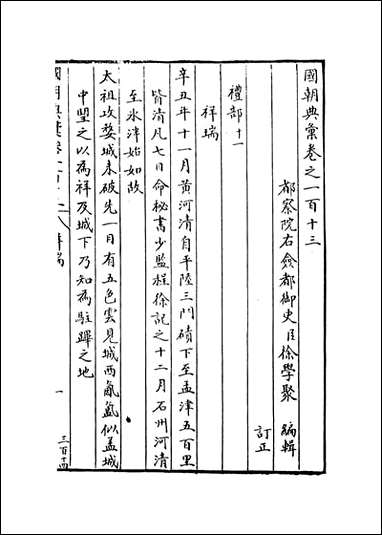 國朝典彙卷之一百十三
都察院右僉都御史臣徐學聚 編輯
訂正
禮部十一
祥瑞
辛丑年十一月黃河清自平陸三門磧下至孟津五百里
皆清凡七日命秘書少監程徐記之十二月石州河清
至氷泮始如故
太祖攻婺城未破先一日有五色雲見城西氤氳似蓋城
中望之以為祥及城下乃知為駐蹕之地
一